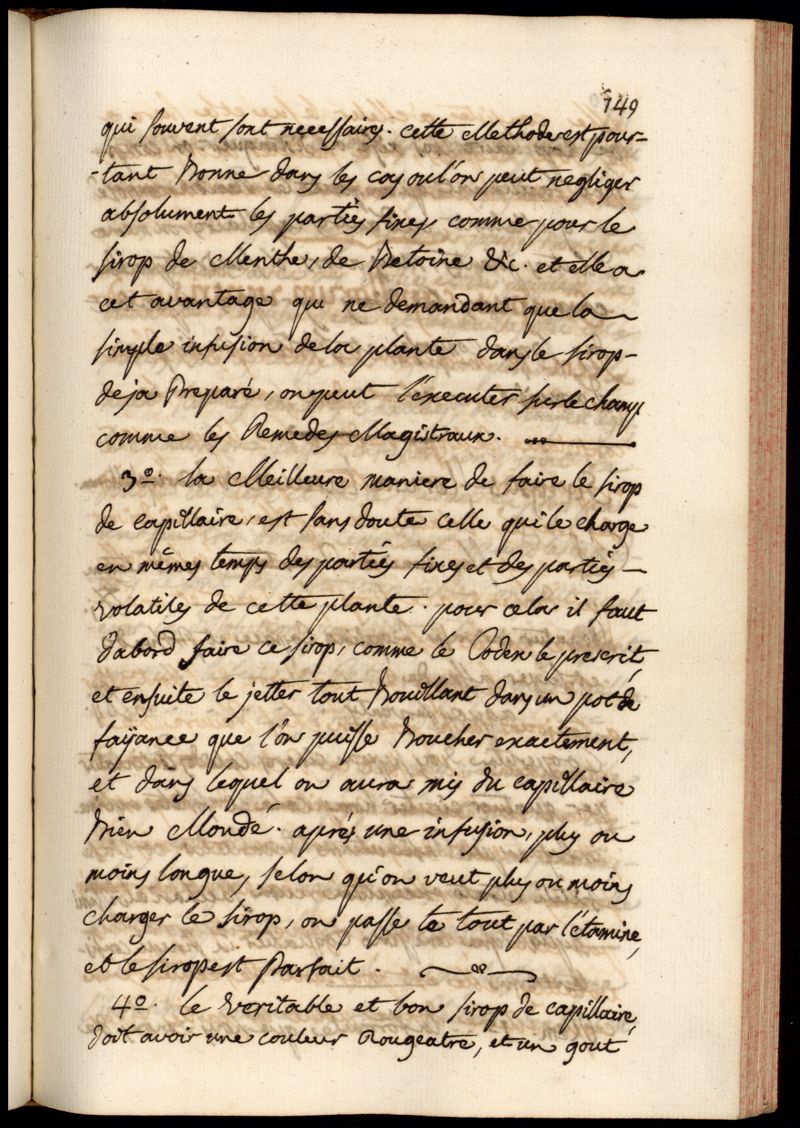 149
qui souvent sont necessaires. cette Methode est pour-
-tant Bonne dans les cas ou l'on peut negliger
absolument les parties fixes comme pour le
sirop de Menthe, de Betoine &c. et elle a
cet avantage qui ne demandant que la
simple infusion de la plante dans le sirop-
deja Preparé, on peut l'executer sur le champ
comme les Remedes Magistraux.
3º. la Meilleure maniere de faire le sirop
de capillaire, est sans doute celle qui le charge
en mêmes temps des parties fixes et des parties
volatiles de cette plante. pour cela il faut
dabord faire ce sirop, comme le Codex le prescrit,
et ensuite le jetter tout Bouillant dans un pot de
faÿance que l'on puisse Boucher exactement,
et dans lequel on aura mis du capillaire
Bien Mondé. aprés une infusion, plus ou
moins longue, selon qu'on veut plus ou moins
charger le sirop, on passe le tout par l'étamine,
et le sirop est Parfait.
4º. le veritable et bon sirop de capillaire,
doit avoir une couleur Rougeatre, et un gout